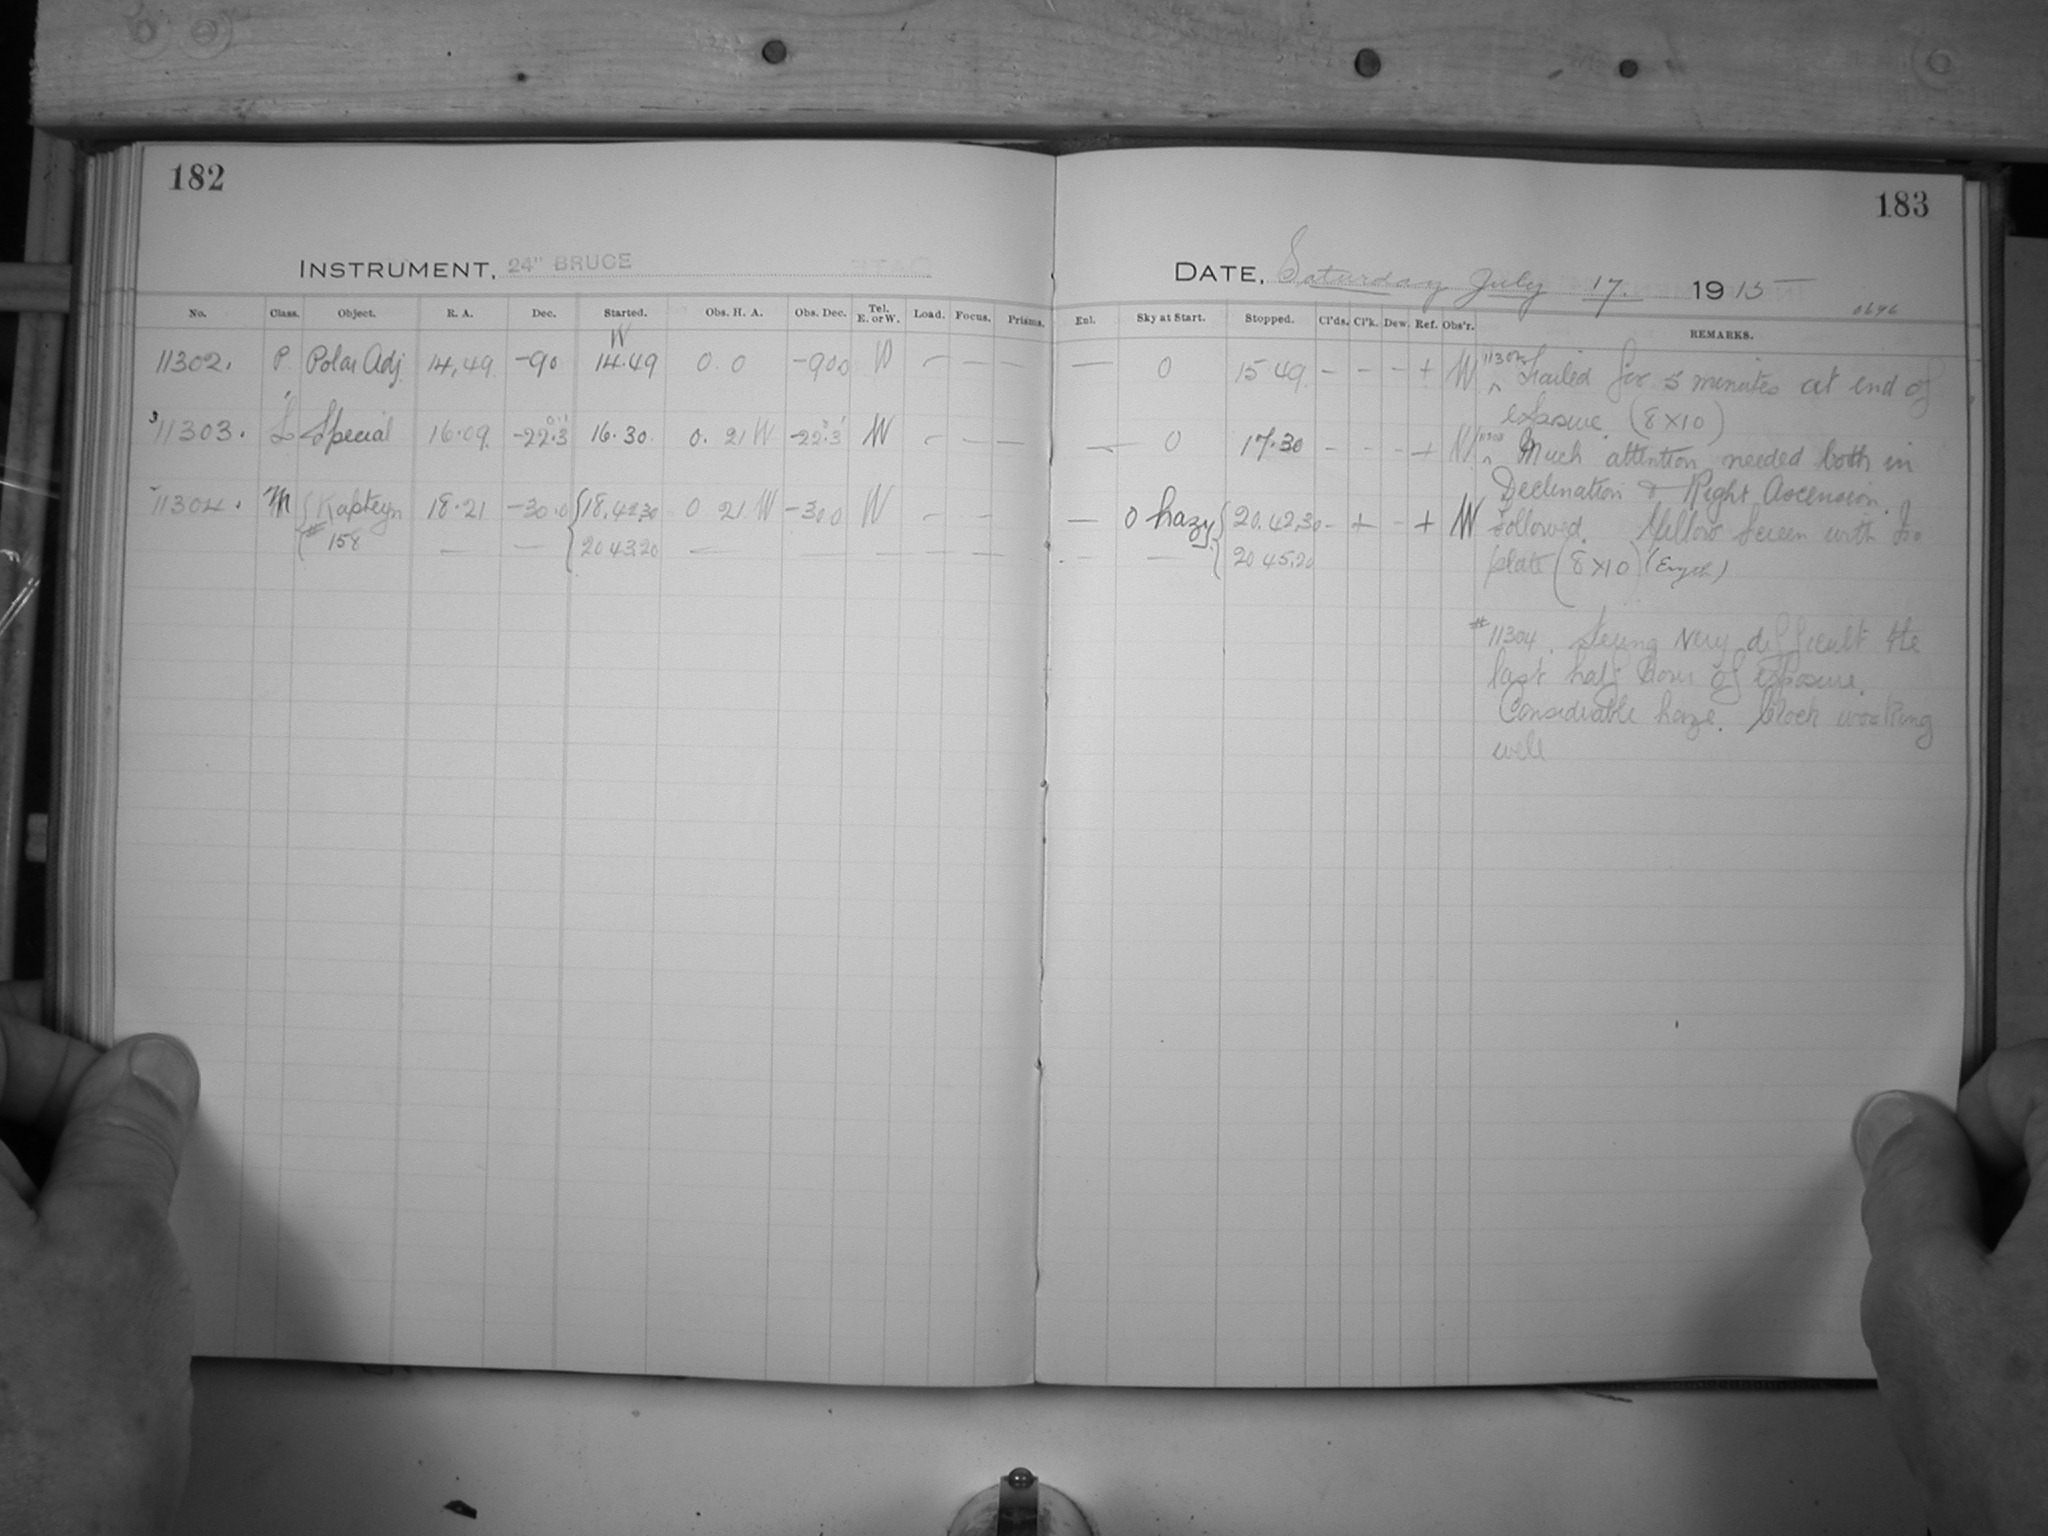 182
183
INSTRUMENT, 24" BRUCE
DATE, Saturday July 17. 1915
0646
No. Class. Object. R. A. Dec. Started. Obs. H. A. Obs. Dec. Tel. E. or W. Load. Focus. Prisms. Enl. Sky at Start. Stopped. Cl'ds. Cl'k. Dew. Ref. Obs'r. REMARKS.
W
11302. P Polar Adj. 14.49 -90 14.49 0. 0 -900 W — — — — 0 15 49 - - - + W 11302 Trailed for 5 minutes at end of
exposure. (8X10)
3 11303. L Special 16.09 -22.3 16.30. 0. 21 W -22.3 W — — — — 0 17.30 - - - + W 11303 Much attention needed both in
Declination & Right Ascension.
11304. M { Kapteyn 18.21 -30.0 { 18.42.30 0 21 W -300 W — — — 0 hazy { 20.42.30 - + - + W Followed. Yellow Screen with Iso
# 158 — — 20 43.20 — — — — — — — — 20 45.20 plate (8X10) (Eryth)
# 11304. Seeing very difficult the
last half hour of exposure.
Considerable haze. Clock working
well